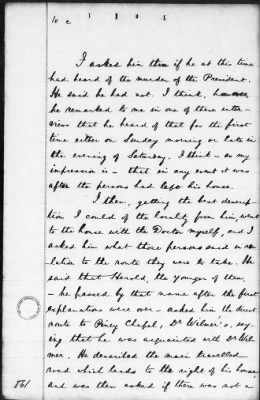 10 c
I asked him then if he at this time
had heard of the murder of the President.
He said he had not. I think, however
he remarked to me in one of these inter-
views that he heard of that for the first
time either on Sunday morning or late in
the evening of Saturday. I think - as my
impression is - that in any event it was
after the persons had left his house.
I then, getting the best descrip-
tion I could of the locality from him, went
to the house with the Doctor myself, and I
asked him what those persons said in re-
lation to the route they were to take. He
said that Herold, the younger of them,
- he passed by that name after the first
explanations were over - asked the direct
route to Piney Chapel, Dr Wilmer's, say-
ing that he was acquainted with Dr Wil-
mer. He described the main travelled
road which leads to the right of his house
and was then asked if there was not a
861